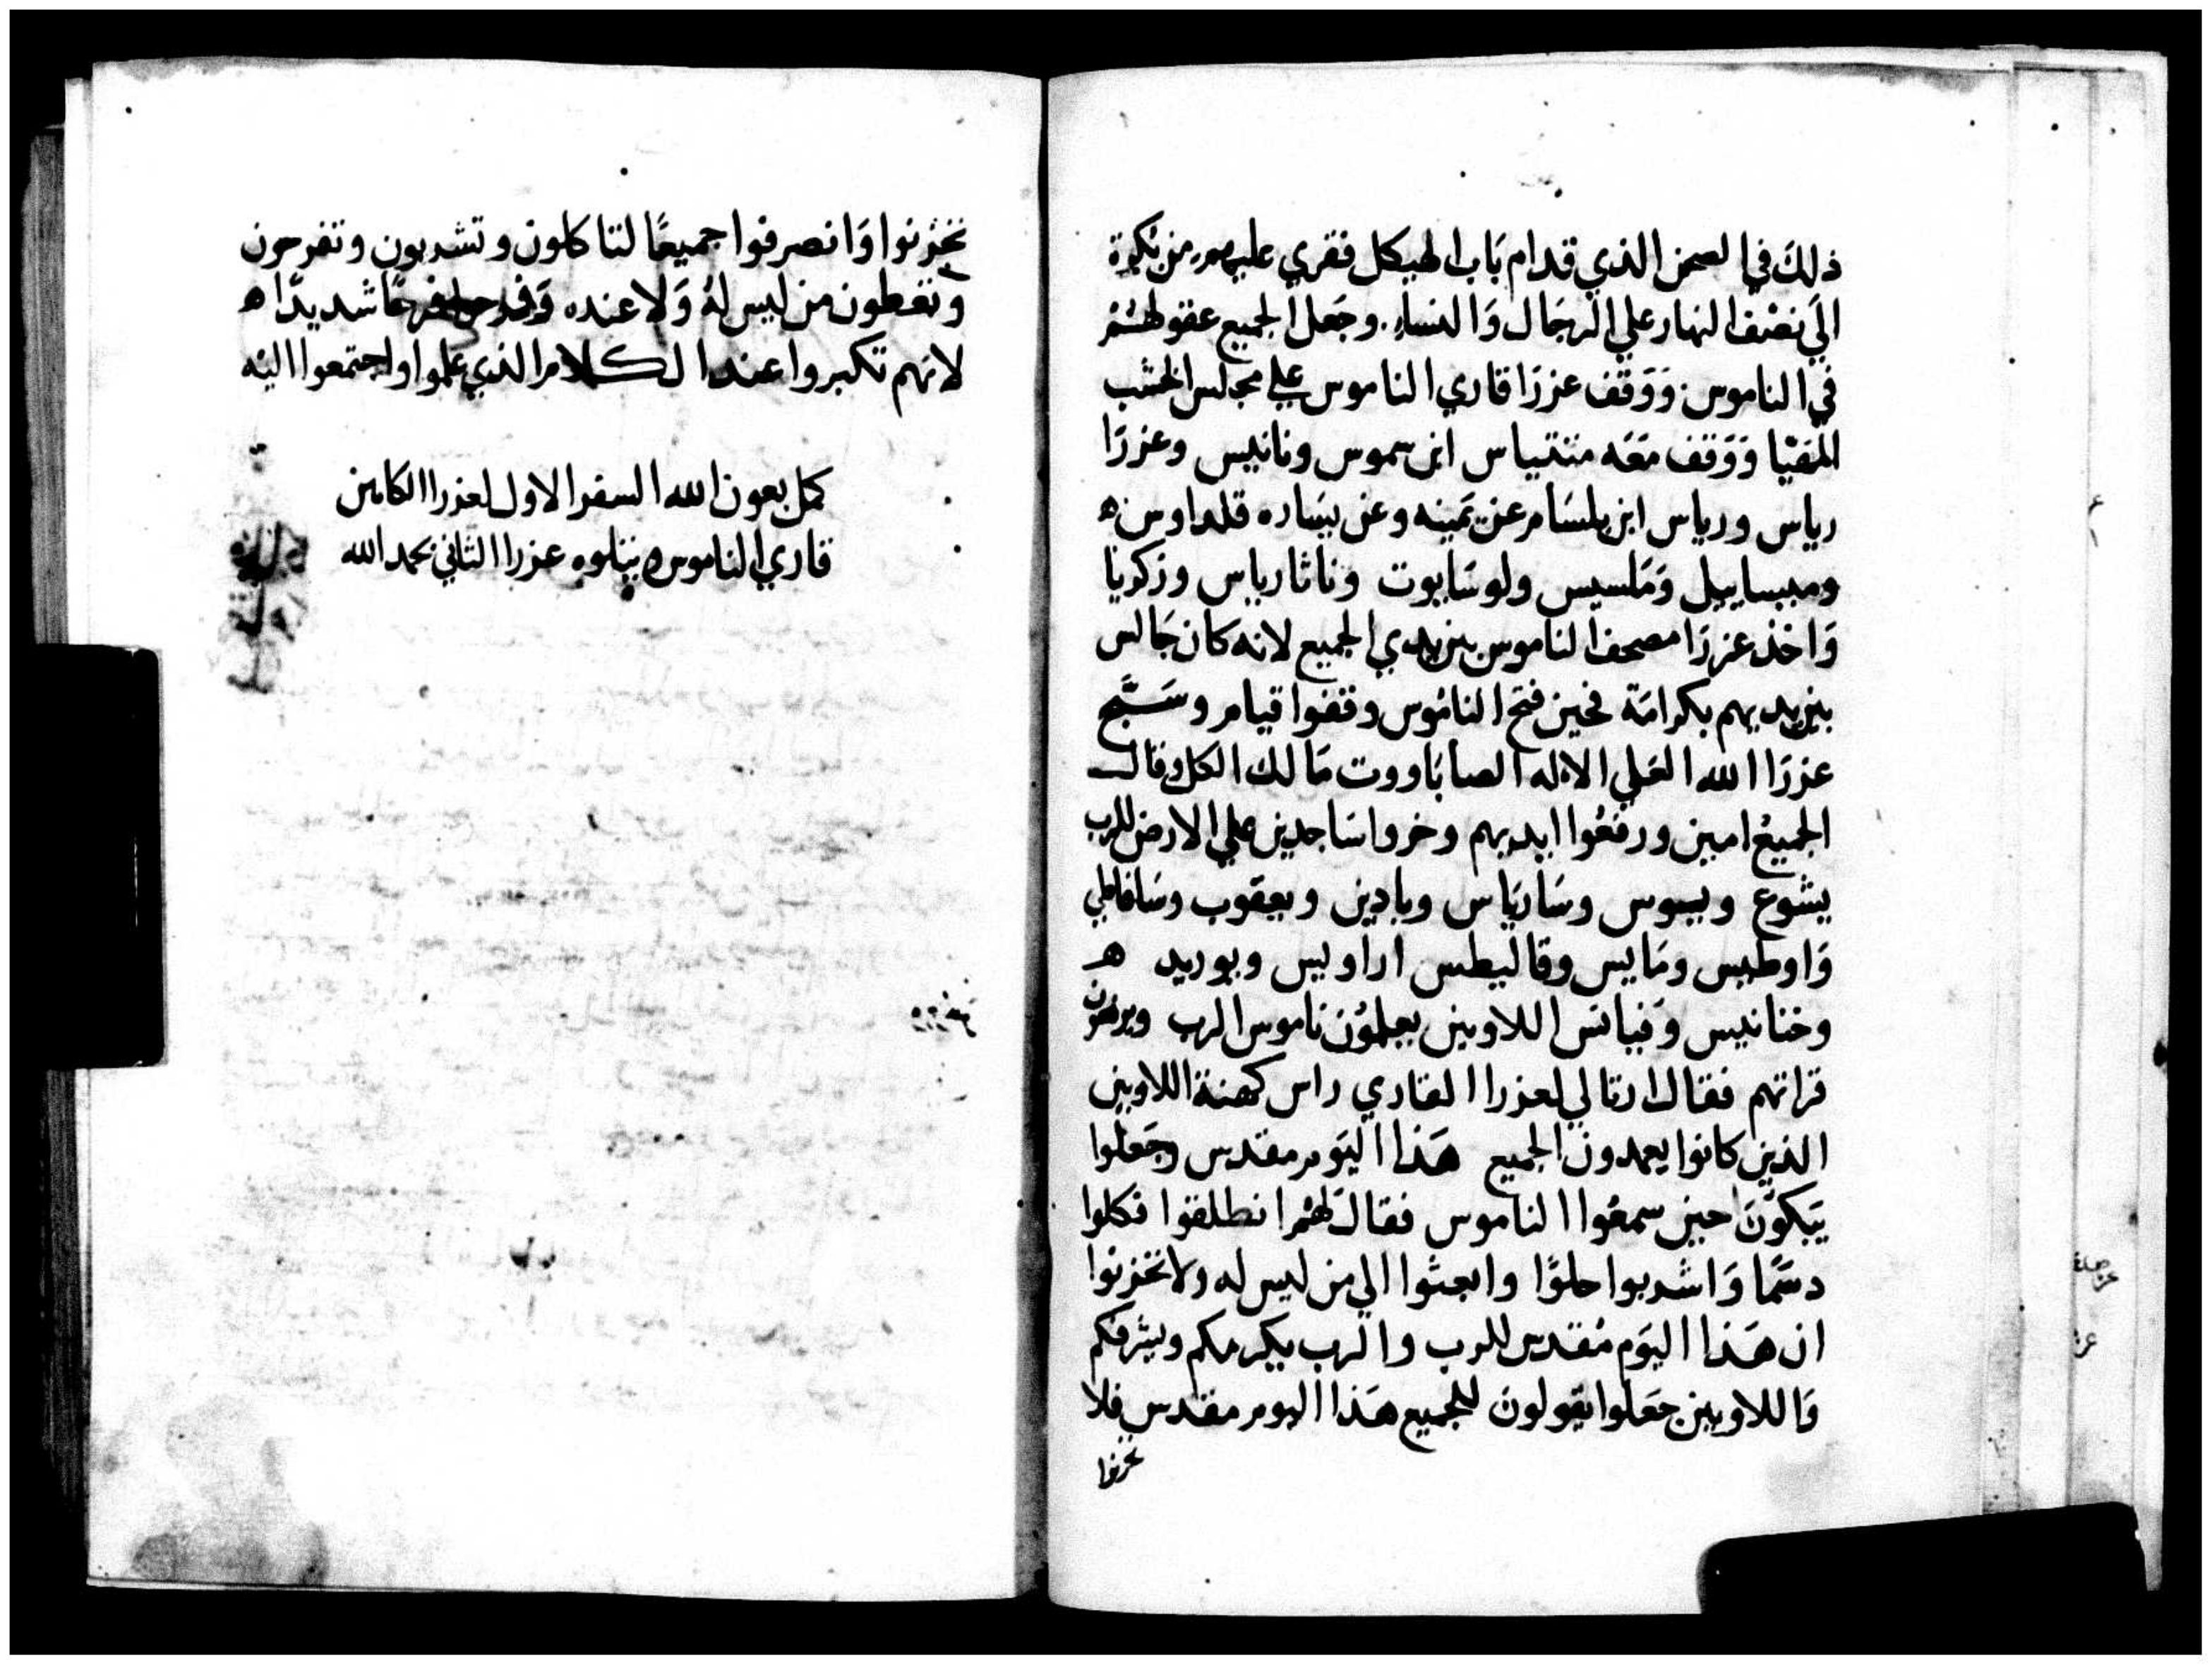 ذلك في الصحن الذي قدام باب الهيكل فقري عليهم من بكرة
الي نصف النهار علي الرجال والنساء. وجعل الجميع عقولهم
في الناموس. ووقف عزرا قاري الناموس علي مجلس الخشب
المهيا ووقف معه متتياس ابن سموس ونانيس وعزرا
رياس ورياس ابن بلسام عن يمينه وعن يساره قلداوس ه
وميساييل وملسيس ولوسابوت وناثارياس وزكريا
واخذ عزرا مصحف الناموس بين يدي الجميع لانه كان جالس
بين يديهم بكرامة فحين فتح الناموس وقفوا قيام وسبح
عزرا الله العلي الاله الصاباووت مالك الكل وقال
الجميع امين ورفعوا ايديهم وخروا ساجدين علي الارض للرب
يشوع ويسوس وسارياس ويادين ويعقوب وسافاطي
واوطيس ومايس وقاليطس اراويس ويوريد ه
وخنانيس وفياتس اللاويين يعلمون ناموس الرب
قراتهم فقال ارتالي لعزرا القاري راس كهنة اللاويين
الذين كانوا يعمدون الجميع هذا اليوم مقدس وجعلوا
يبكون حين سمعوا الناموس فقال لهم انطلقوا فكلوا
دسما واشربوا حلوا وابعثوا الي من ليس له ولا تحزنوا
ان هذا اليوم مقدس للرب والرب يكرمكم ويشرفكم
واللاويين جعلوا يقولون للجميع هذا اليوم مقدس فلا
تحزنوا
تحزنوا وانصرفوا جميعا لتاكلون وتشربون وتفرحون
وتعطون من ليس له ولا عنده فرحا شديدا ه
لانهم تكبروا عند الكلام الذي علموا واجتمعوا اليه
كمل بعون الله السفر الاول لعزرا الكاهن
قاري الناموس ويتلوه عزرا الثاني بحمد الله